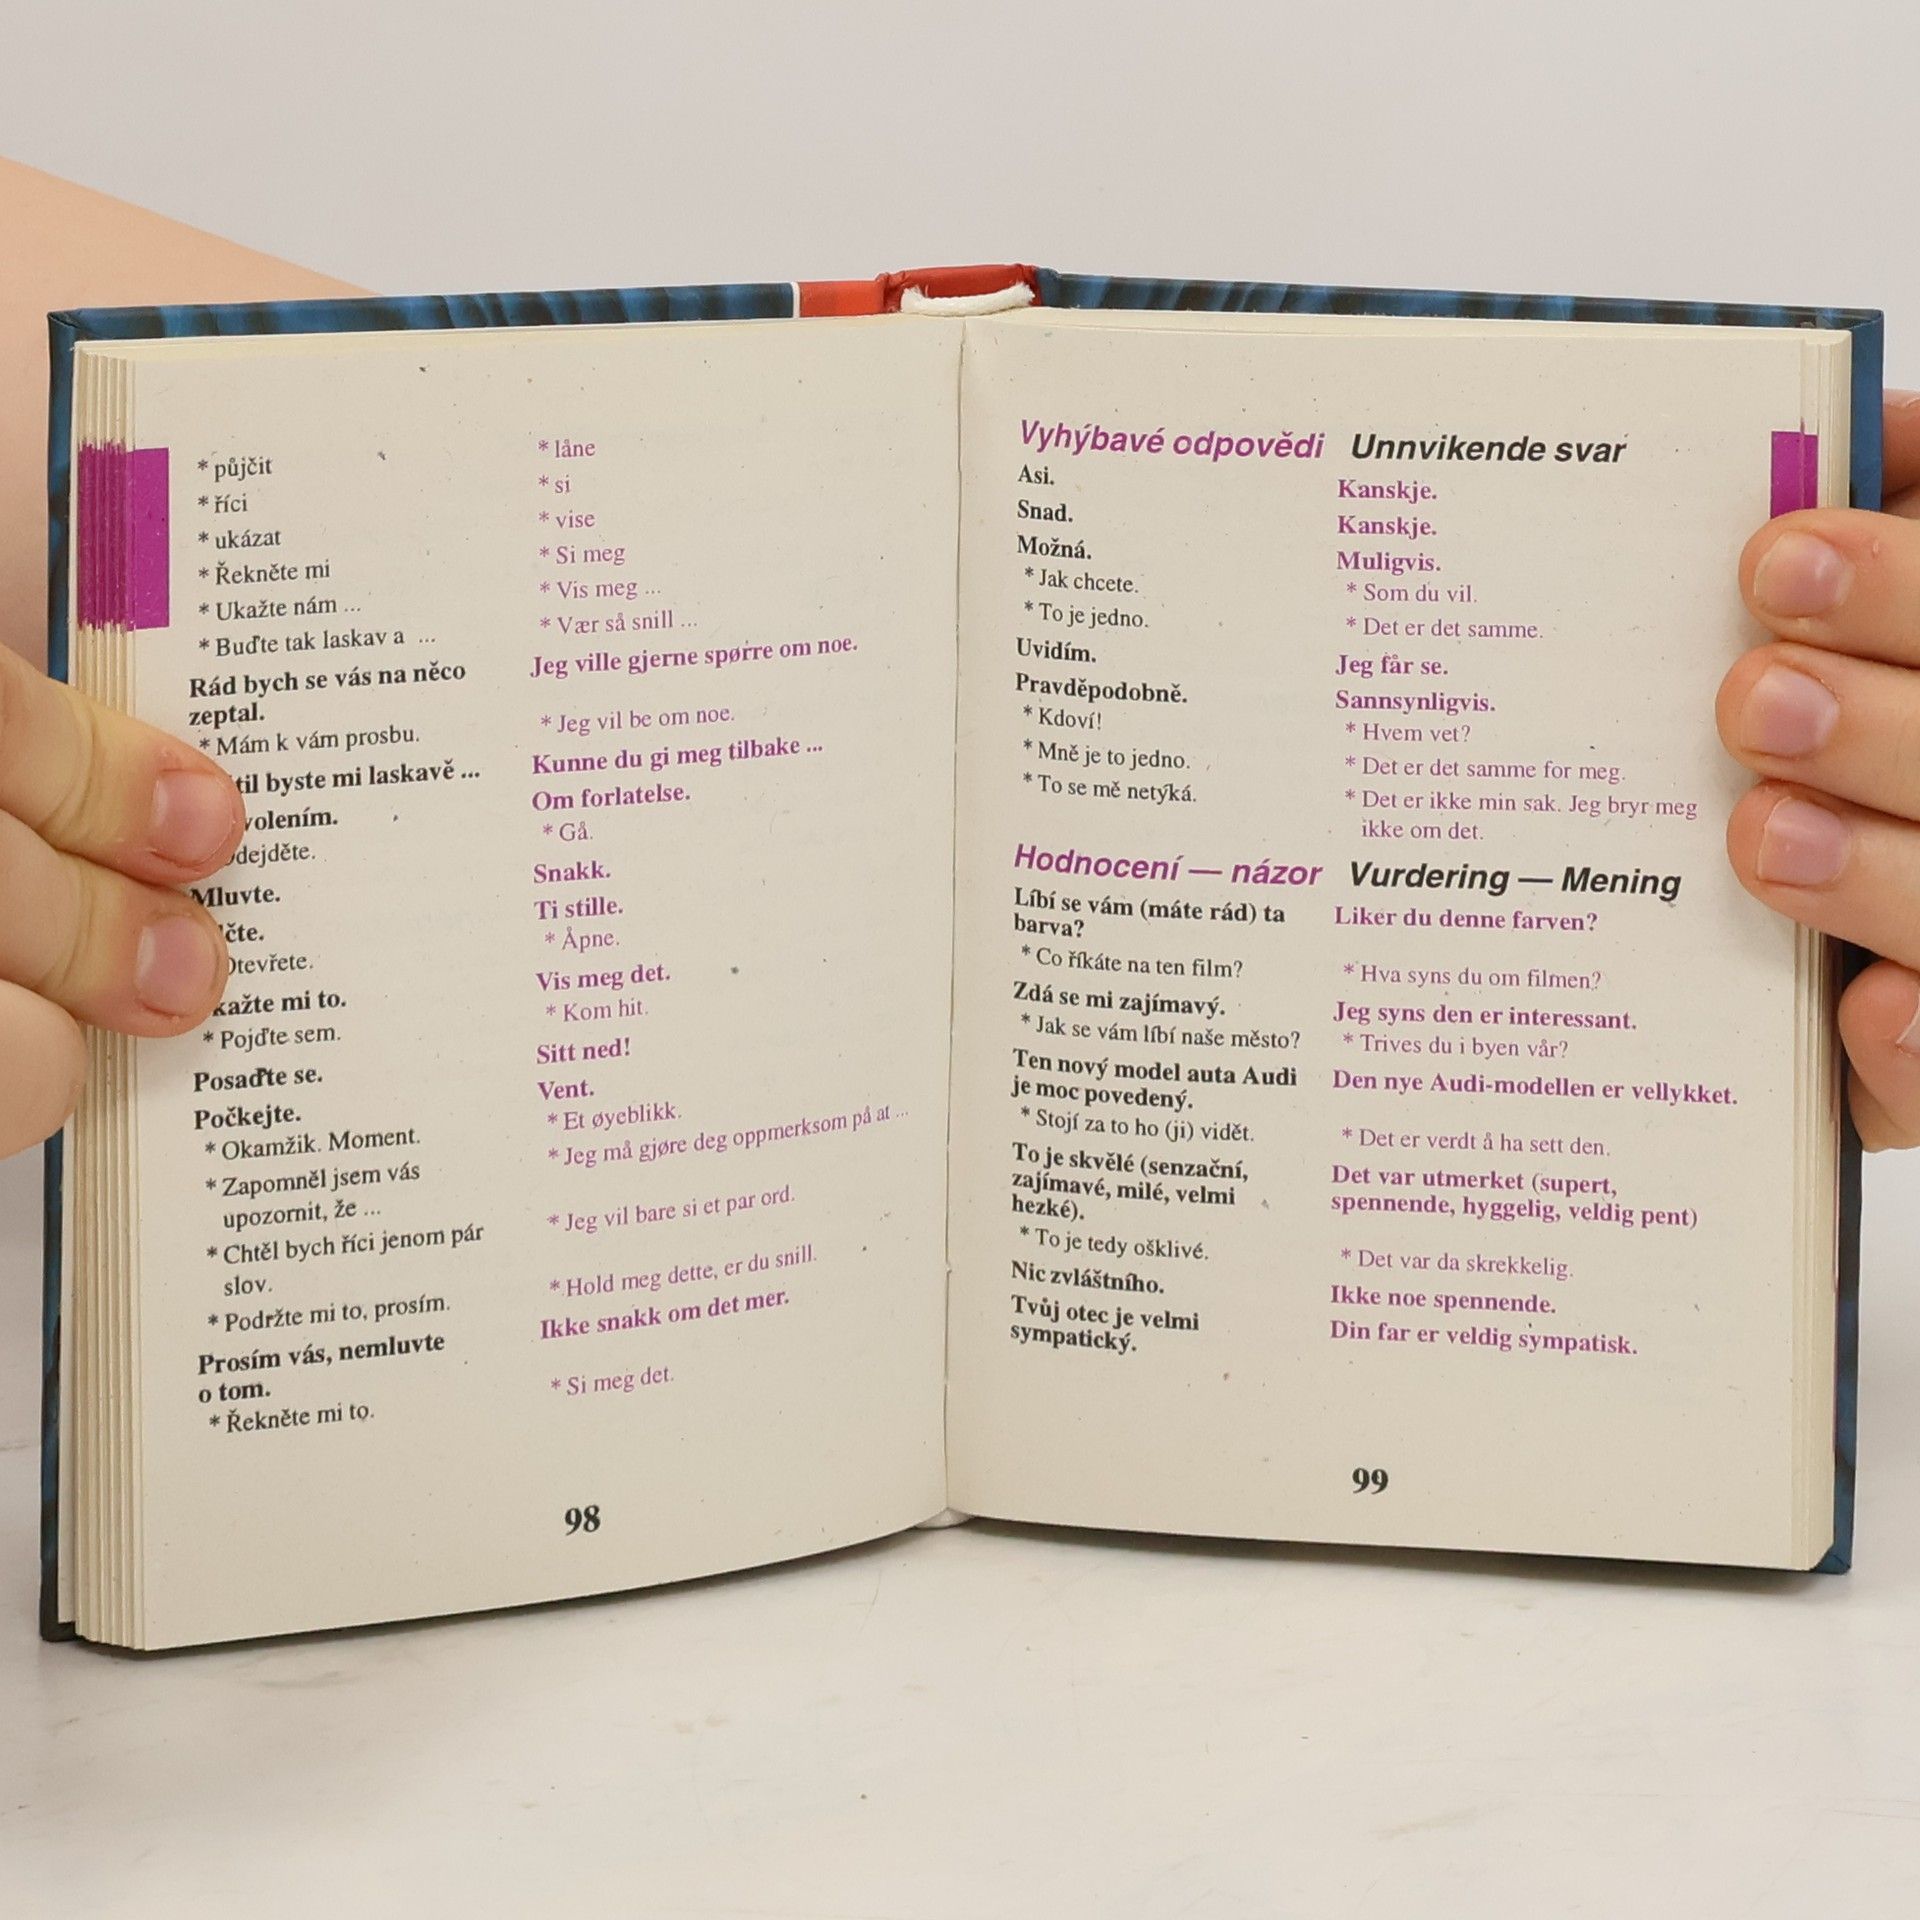 * půjčit
* říci
* ukázat
* Řekněte mi
* Ukažte nám ...
* Buďte tak laskav a ...
Rád bych se vás na něco
zeptal.
* Mám k vám prosbu.
byste mi laskavě ...
Mluvte.
mi to.
* Pojďte sem.
Posaďte se.
Počkejte.
* Okamžik. Moment.
* Zapomněl jsem vás
upozornit, že ...
* Chtěl bych říci jenom pár
slov.
* Podržte mi to, prosím.
Prosím vás, nemluvte
o tom.
* Řekněte mi to.
* låne
* si
* vise
* Si meg
* Vis meg ...
* Vær så snill ...
Jeg ville gjerne spørre om noe.
* Jeg vil be om noe.
Kunne du gi meg tilbake ...
Om forlatelse.
* Gå.
Snakk.
Ti stille.
* Åpne.
Vis meg det.
* Kom hit.
Sitt ned!
Vent.
* Et øyeblikk.
* Jeg må gjøre deg oppmerksom på at ...
* Jeg vil bare si et par ord.
* Hold meg dette, er du snill.
Ikke snakk om det mer.
* Si meg det.
98
Vyhýbavé odpovědi
Asi.
Snad.
Možná.
* Jak chcete.
* To je jedno.
Uvidím.
Pravděpodobně.
* Kdoví!
* Mně je to jedno.
* To se mě netýká.
Unnvikende svar
Kanskje.
Kanskje.
Muligvis.
* Som du vil.
* Det er det samme.
Jeg får se.
Sannsynligvis.
* Hvem vet?
* Det er det samme for meg.
* Det er ikke min sak. Jeg bryr meg
ikke om det.
Hodnocení — názor
Líbí se vám (máte rád) ta
barva?
* Co říkáte na ten film?
Zdá se mi zajímavý.
* Jak se vám líbí naše město?
Ten nový model auta Audi
je moc povedený.
* Stojí za to ho (ji) vidět.
To je skvělé (senzační,
zajímavé, milé, velmi
hezké).
* To je tedy ošklivé.
Nic zvláštního.
Tvůj otec je velmi
sympatický.
Vurdering — Mening
Liker du denne farven?
* Hva syns du om filmen?
Jeg syns den er interessant.
* Trives du i byen vår?
Den nye Audi-modellen er vellykket.
* Det er verdt å ha sett den.
Det var utmerket (supert,
spennende, hyggelig, veldig pent)
* Det var da skrekkelig.
Ikke noe spennende.
Din far er veldig sympatisk.
99